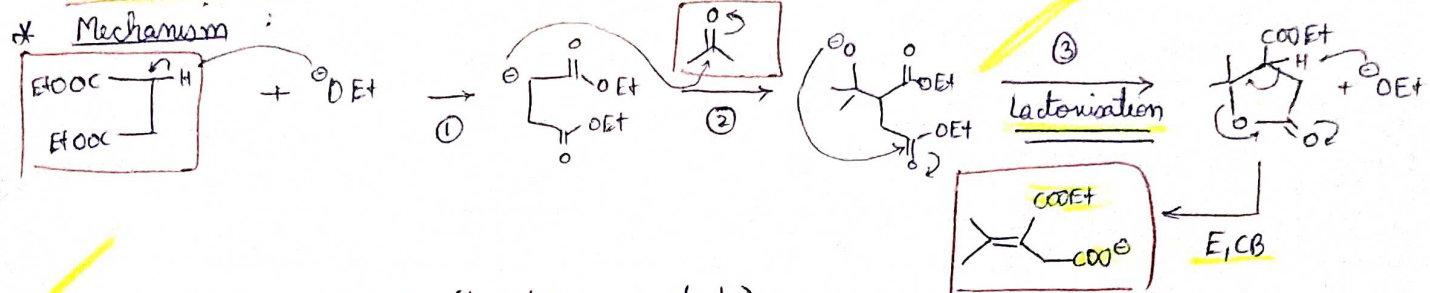 * Mechanism :
EtOOC H
EtOOC
+ ⊖OEt
①
⊖ O OEt
OEt
O
O
②
⊖O O OEt
OEt
O
③
Lactonisation
COOEt
H
O O
+ ⊖OEt
E1CB
COOEt
COO⊖